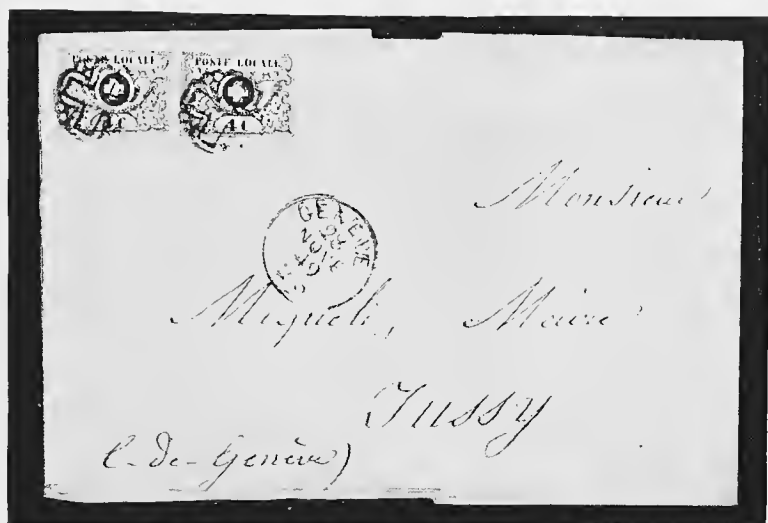 POSTE LOCALE POSTE LOCALE
4 C
GENEVE
Monsieur
Maire
Jussy
C. de Genève)